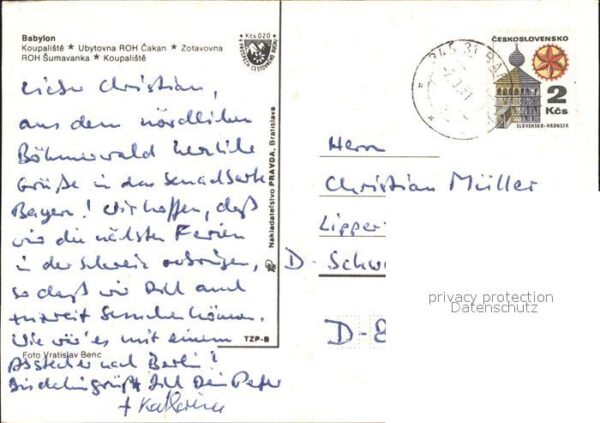 Babylon
Koupaliště * Ubytovna ROH Čakan * Zotavovna
ROH Šumavanka * Koupaliště
Kčs 0,20
Lieber Christian,
aus dem nördlichen
Böhmerwald herzliche
Grüße in das
Bayern! Wir hoffen, daß
wir die nächsten Ferien
in der Schweiz verbringen,
so daß wir Dich auch
können.
Wie wär's mit einem
Abstecher nach Berlin?
grüßt Dich Dein Peter
+ Katharina
Foto Vratislav Benc
TZP-B
Nakladateľstvo PRAVDA, Bratislava
ČESKOSLOVENSKO
2
Kčs
SLOVENSKO-HRONSEK
Herrn
Christian Müller
Lipper
D- Schw
D-8
privacy protection
Datenschutz